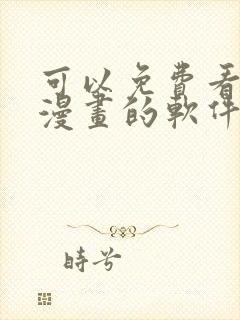 可以免費看
漫畫的軟件
時兮